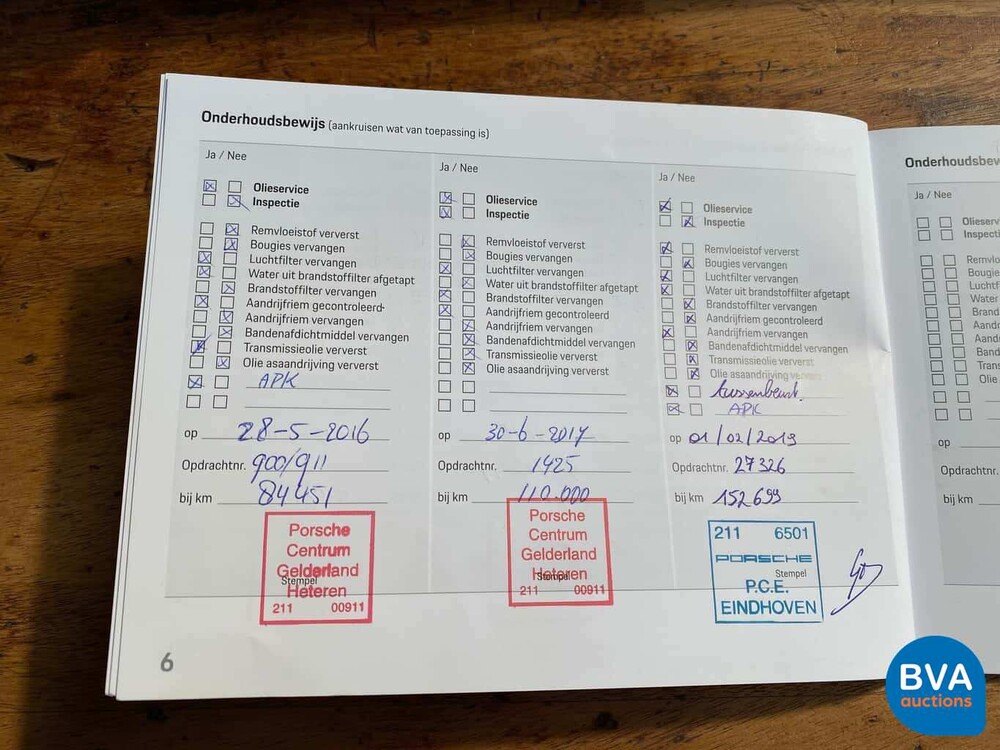 Onderhoudsbewijs (aankruisen wat van toepassing is)
Ja / Nee
Olieservice
Inspectie
Remvloeistof ververst
Bougies vervangen
Luchtfilter vervangen
Water uit brandstoffilter afgetapt
Brandstoffilter vervangen
Aandrijfriem gecontroleerd
Aandrijfriem vervangen
Bandenafdichtmiddel vervangen
Transmissieolie ververst
Olie asaandrijving ververst
APK
op 28-5-2016
Opdrachtnr. 900/911
bij km 84451
Porsche
Centrum
Gelderland
Stempel
Heteren
211 00911
Ja / Nee
Olieservice
Inspectie
Remvloeistof ververst
Bougies vervangen
Luchtfilter vervangen
Water uit brandstoffilter afgetapt
Brandstoffilter vervangen
Aandrijfriem gecontroleerd
Aandrijfriem vervangen
Bandenafdichtmiddel vervangen
Transmissieolie ververst
Olie asaandrijving ververst
op 30-6-2017
Opdrachtnr. 1425
bij km 110.000
Porsche
Centrum
Gelderland
Heteren
Stempel
211 00911
Ja / Nee
Olieservice
Inspectie
Remvloeistof ververst
Bougies vervangen
Luchtfilter vervangen
Water uit brandstoffilter afgetapt
Brandstoffilter vervangen
Aandrijfriem gecontroleerd
Aandrijfriem vervangen
Bandenafdichtmiddel vervangen
Transmissieolie ververst
Olie asaandrijving ververst
tussenbeurt.
APK
op 01/02/2019
Opdrachtnr. 27326
bij km 152699
211 6501
PORSCHE
Stempel
P.C.E.
EINDHOVEN
6
Onderhoudsbew
Ja / Nee
Olieserv
Inspecti
Remvlo
Bougies
Luchtf
Water
Brand
Aandr
Aandr
Band
Trans
Olie
op
Opdrachtnr.
bij km
BVA
auctions